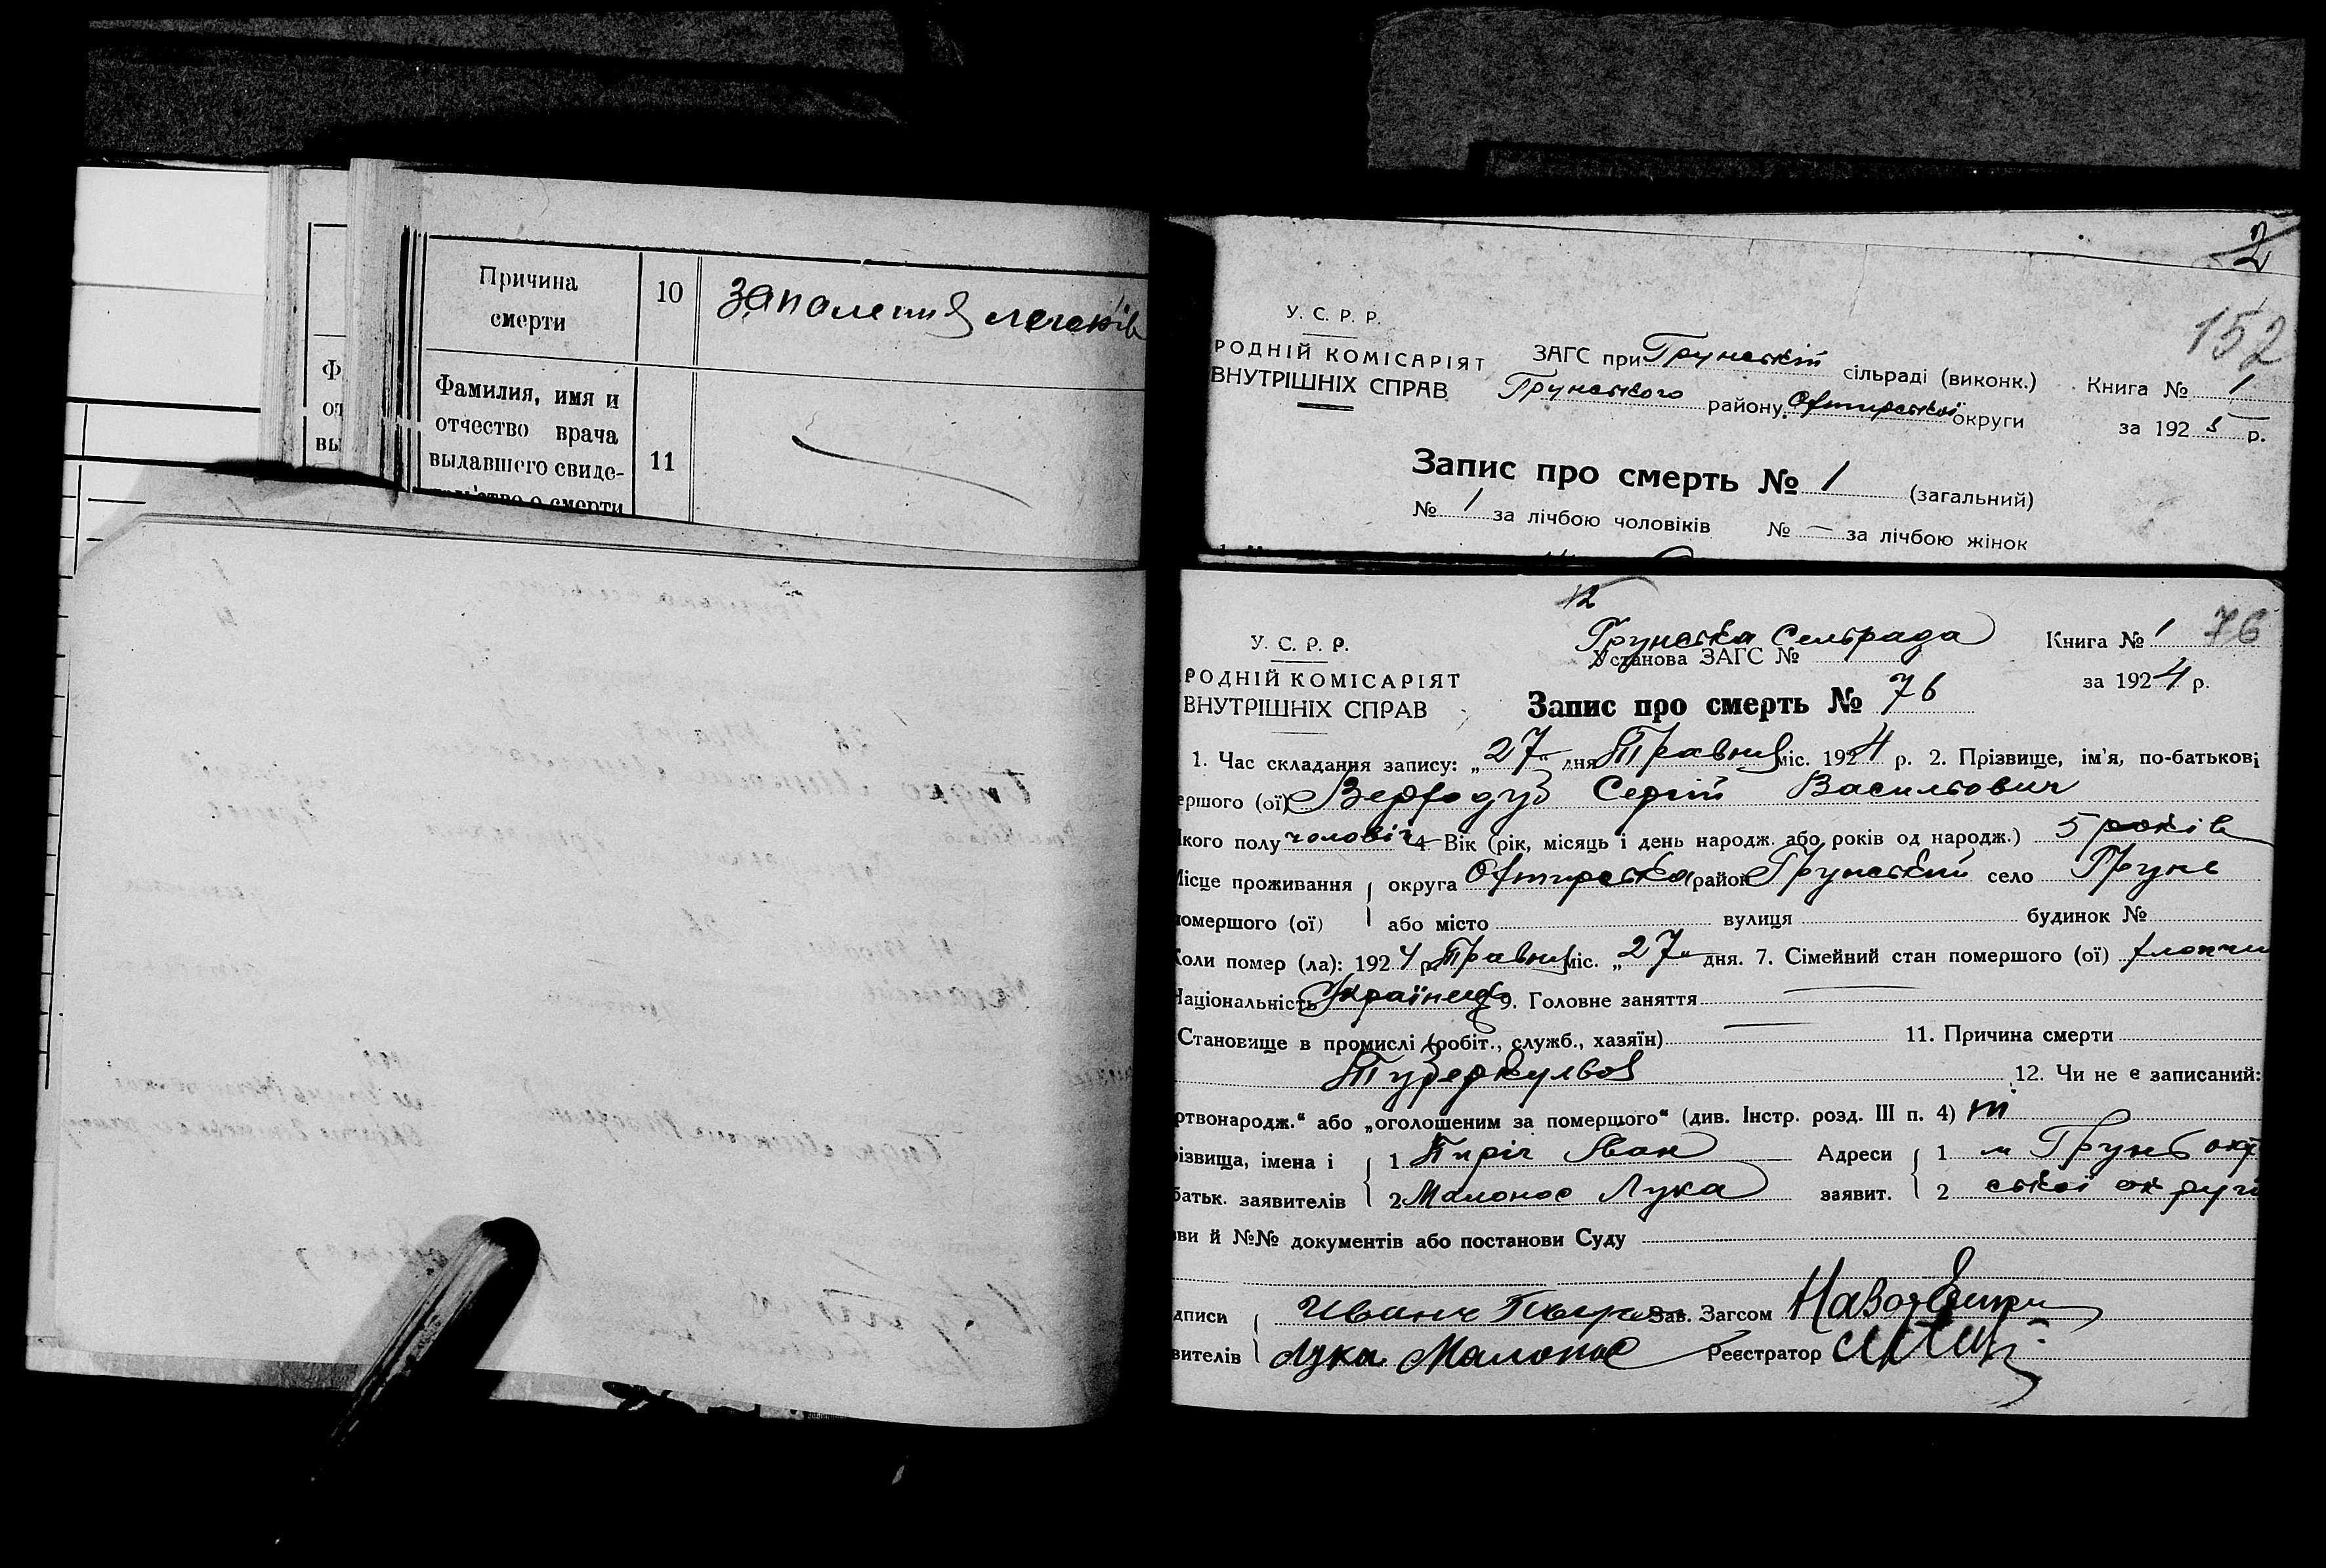 Причина
смерти
10
запаления легенів
Ф
от
вы
Фамилия, имя и
отчество врача
выдавшего свиде-
о смерти
11
2
152
У. С. Р. Р.
РОДНІЙ КОМІСАРІЯТ
ВНУТРІШНІХ СПРАВ
ЗАГС при Грунській сільраді (виконк.)
Грунського району Охтирської округи
Книга № 1
за 1925 р.
Запис про смерть № 1 (загальний)
№ 1 за лічбою чоловіків № — за лічбою жінок
12
Грунська Сельрада
Установа ЗАГС №
Книга № 1 76
за 1924 р.
У. С. Р. Р.
РОДНІЙ КОМІСАРІЯТ
ВНУТРІШНІХ СПРАВ
Запис про смерть № 76
1. Час складання запису: „27“ дня Травня міс. 1924 р. 2. Прізвище, ім'я, по-батькові
ершого (ої) Вербодуб Сергій Васильович
якого полу чоловіч 4. Вік (рік, місяць і день народж. або років од народж.) 5 років
Місце проживання округа Охтирська район Грунський село Грунь
помершого (ої) або місто вулиця будинок №
Коли помер (ла): 1924 р. Травня міс. „27“ дня. 7. Сімейний стан помершого (ої)
Національність Українець 9. Головне заняття —
Становище в промислі (робіт., служб., хазяїн) — 11. Причина смерти
Туберкульоз 12. Чи не є записаний:
ртвонародж.“ або „оголошеним за помершого“ (див. Інстр. розд. III п. 4)
різвища, імена і 1 Пиріг Іван Адреси 1 м Грунь
батьк. заявителів 2 Малонос Лука заявит. 2 ської округи
ви й №№ документів або постанови Суду
дписи Зав. Загсом
вителів Лука Малонос Реєстратор